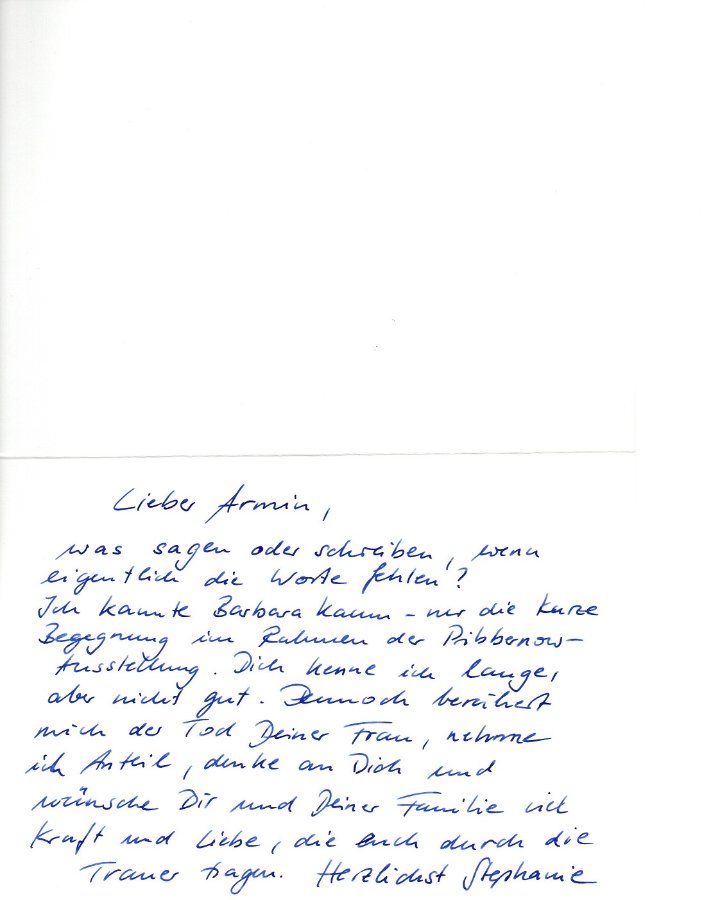 Lieber Armin,
was sagen oder schreiben, wenn
eigentlich die Worte fehlen?
Ich kannte Barbara kaum - nur die kurze
Begegnung im Rahmen der Pibbernow-
Ausstellung. Dich kenne ich lange,
aber nicht gut. Dennoch berührt
mich der Tod Deiner Frau, nehme
ich Anteil, denke an Dich und
wünsche Dir und Deiner Familie viel
Kraft und Liebe, die euch durch die
Trauer tragen. Herzlichst Stephanie